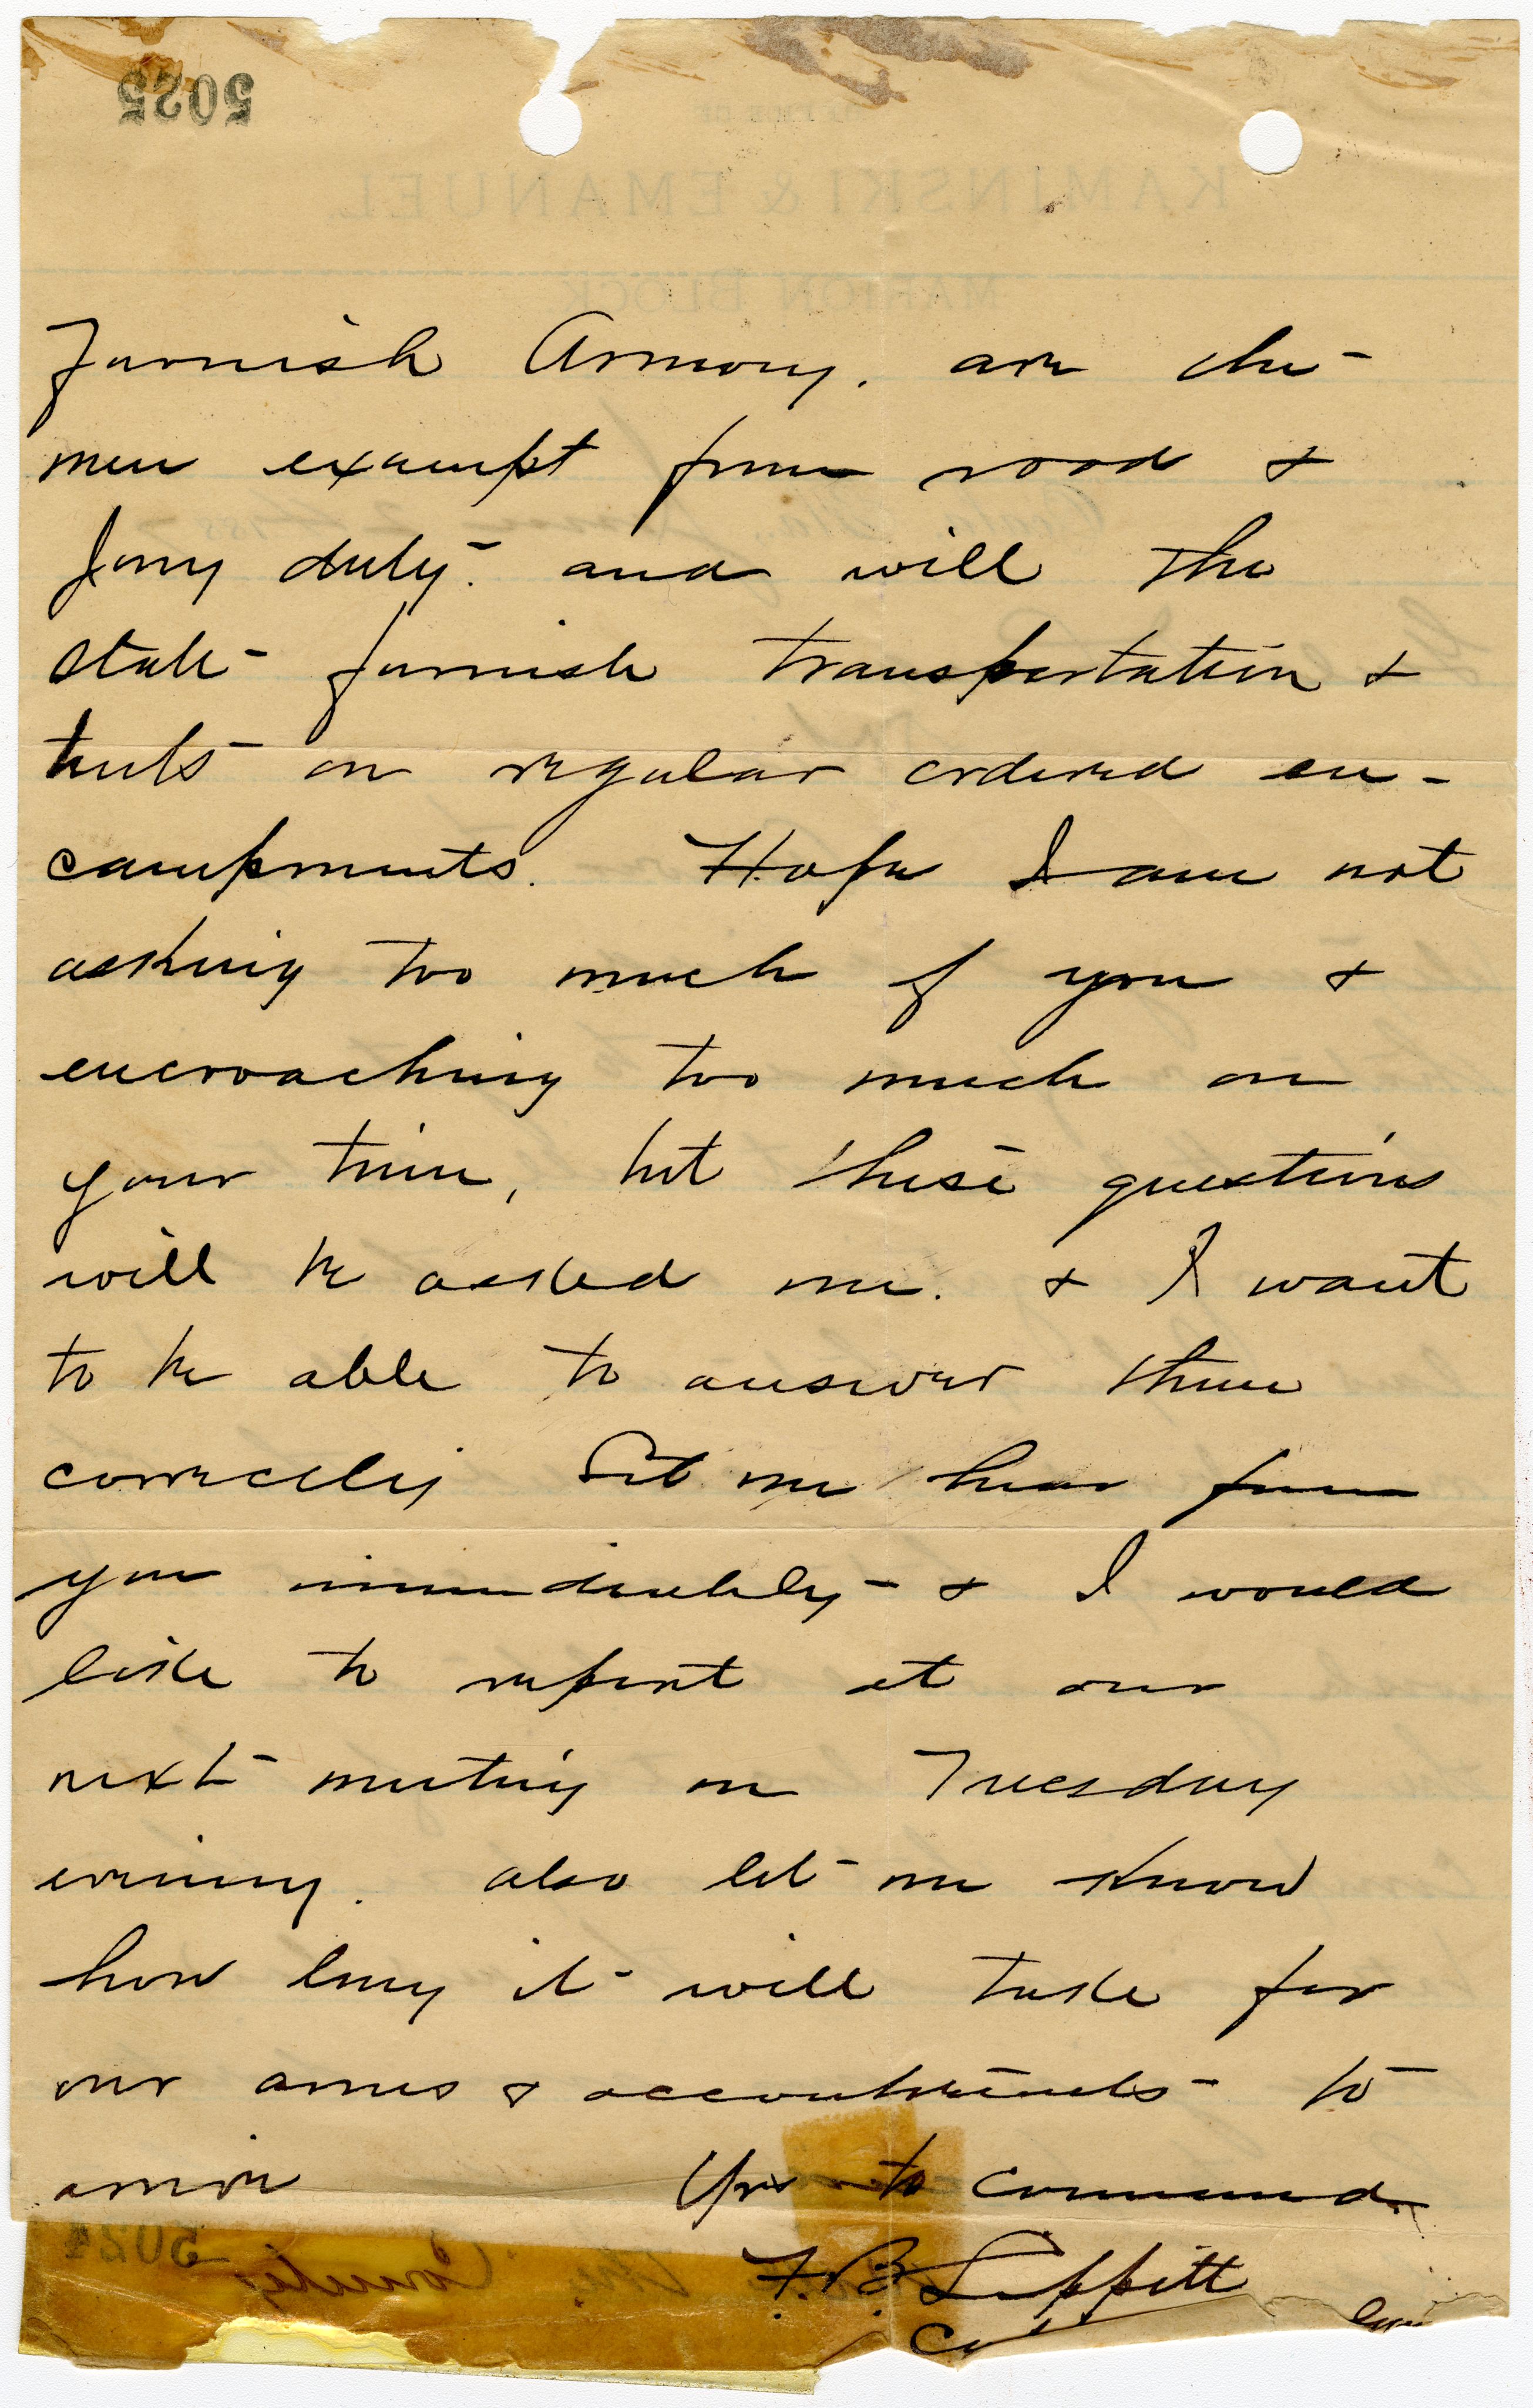 5025
OFFICE OF
KAMINSKI & EMANUEL
MARION BLOCK
furnish Armory. are the
men exempt from road &
Jury duty. and will the
State furnish transportation &
tents on regular ordered en-
campments. Hope I am not
asking too much of you &
encroaching too much on
your time, but these questions
will be asked me. & I want
to be able to answer them
correctly Let me hear from
you immediately & I would
like to report at our
next meeting on Tuesday
evening. also let me know
how long it will take for
our arms & accoutrements to
arrive Yrs to command
F. B. Lippitt
5024